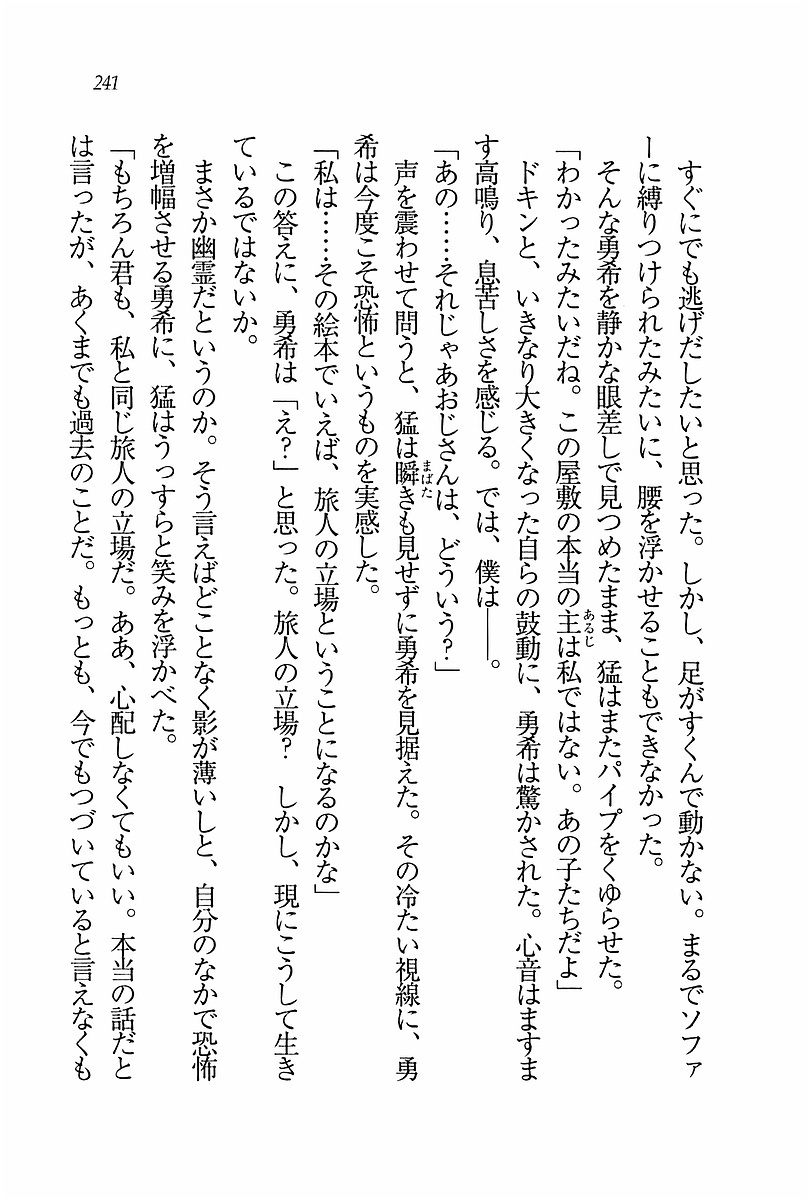 241
すぐにでも逃げだしたいと思った。しかし、足がすくんで動かない。まるでソファ
ーに縛りつけられたみたいに、腰を浮かせることもできなかった。
そんな勇希を静かな眼差しで見つめたまま、猛はまたパイプをくゆらせた。
「わかったみたいだね。この屋敷の本当の主は私ではない。あの子たちだよ」
あるじ
ドキンと、いきなり大きくなった自らの鼓動に、勇希は驚かされた。心音はますま
す高鳴り、息苦しさを感じる。では、僕は――。
「あの……それじゃあおじさんは、どういう？」
声を震わせて問うと、猛は瞬きも見せずに勇希を見据えた。その冷たい視線に、勇
まばた
希は今度こそ恐怖というものを実感した。
「私は……その絵本でいえば、旅人の立場ということになるのかな」
この答えに、勇希は「え？」と思った。旅人の立場？　しかし、現にこうして生き
ているではないか。
まさか幽霊だというのか。そう言えばどことなく影が薄いしと、自分のなかで恐怖
を増幅させる勇希に、猛はうっすらと笑みを浮かべた。
「もちろん君も、私と同じ旅人の立場だ。ああ、心配しなくてもいい。本当の話だと
は言ったが、あくまでも過去のことだ。もっとも、今でもつづいていると言えなくも